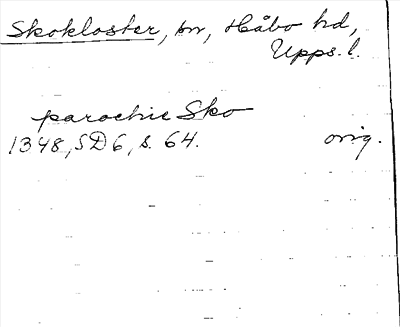 Skokloster, sn, Håbo hd,
Upps. l.
parochie Sko
1348, SD 6, s. 64. orig.